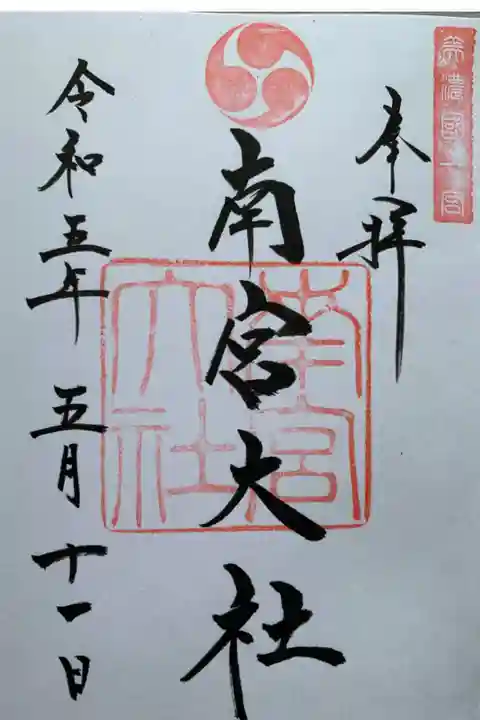 美濃國一宮
奉拝
南宮大社
南宮大社
令和五年 五月 十一日